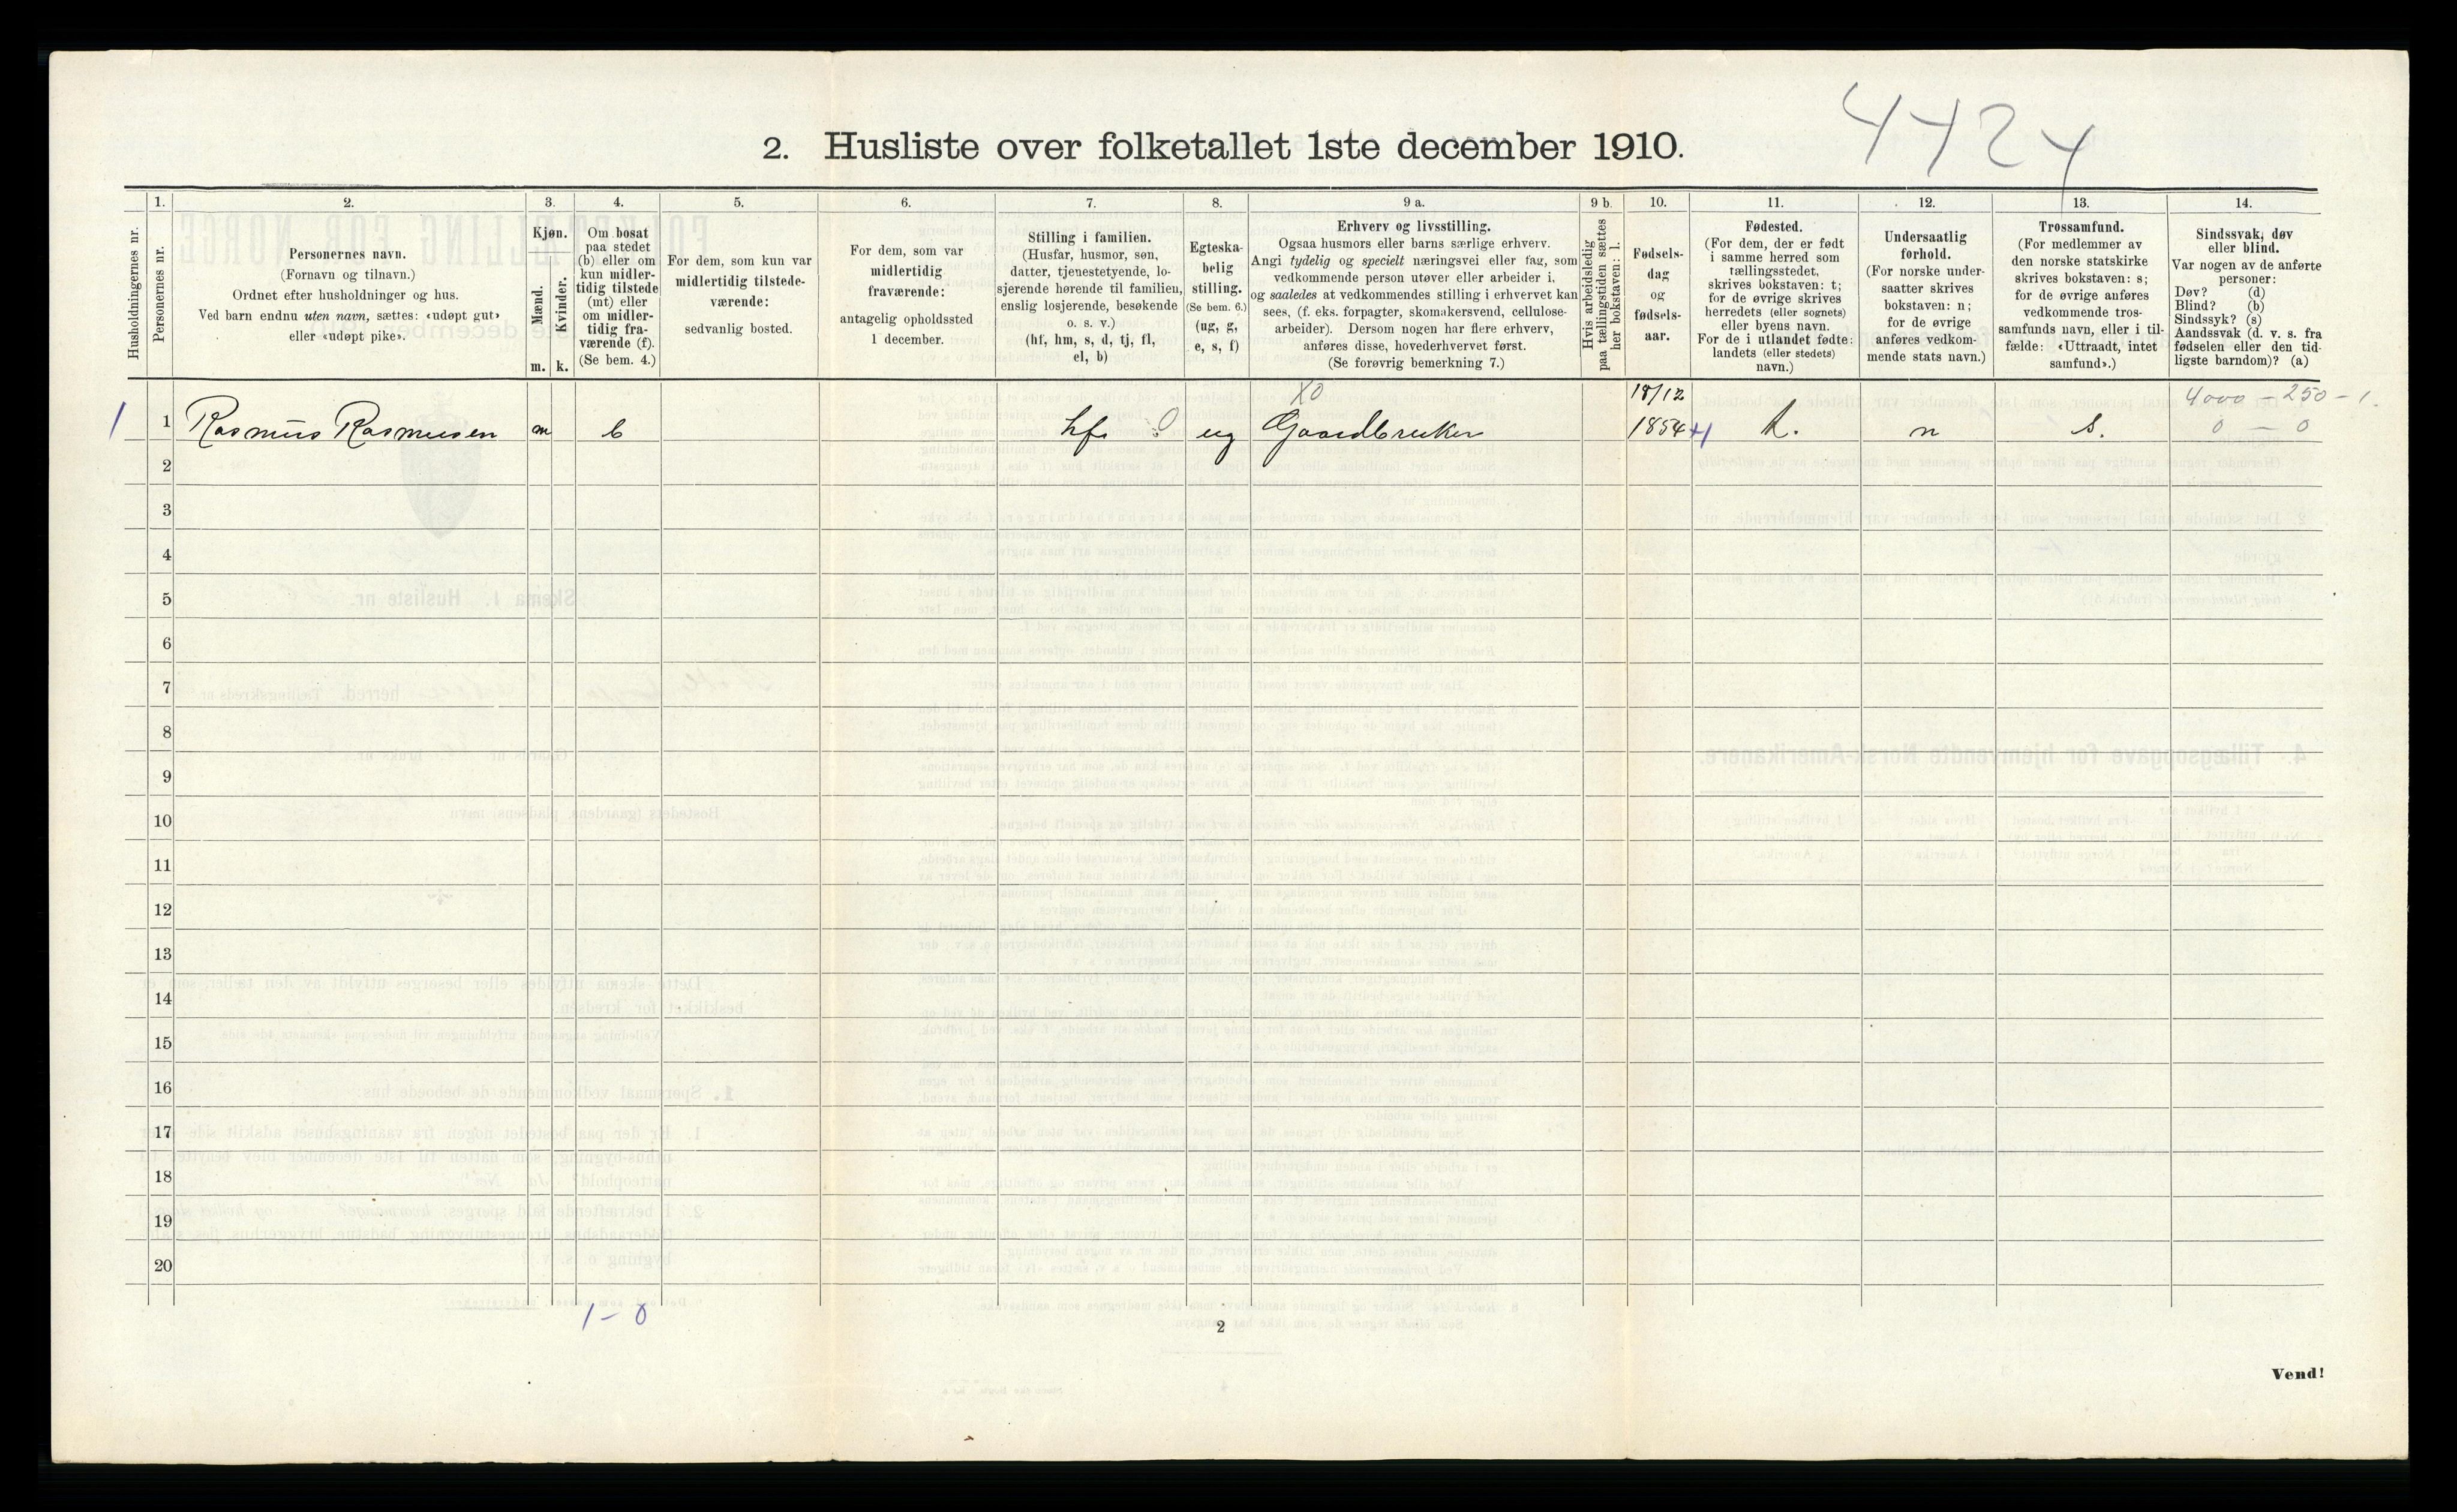 4424
2. Husliste over folketallet 1ste december 1910.
Husholdningernes nr.
1.
Personernes nr.
2.
Personernes navn.
(Fornavn og tilnavn.)
Ordnet efter husholdninger og hus.
Ved barn endnu uten navn, sættes: «udøpt gut»
eller «udøpt pike».
3.
Kjøn.
Mænd.
Kvinder.
m. k.
4.
Om bosat
paa stedet
(b) eller om
kun midler-
tidig tilstede
(mt) eller
om midler-
tidig fra-
værende (f).
(Se bem. 4.)
5.
For dem, som kun var
midlertidig tilstede-
værende:
sedvanlig bosted.
6.
For dem, som var
midlertidig
fraværende:
antagelig opholdssted
1 december.
7.
Stilling i familien.
(Husfar, husmor, søn,
datter, tjenestetyende, lo-
sjerende hørende til familien,
enslig losjerende, besøkende
o. s. v.)
(hf, hm, s, d, tj, fl,
el, b)
8.
Egteska-
belig
stilling.
(Se bem. 6.)
(ug, g,
e, s, f)
9 a.
Erhverv og livsstilling.
Ogsaa husmors eller barns særlige erhverv.
Angi tydelig og specielt næringsvei eller fag, som
vedkommende person utøver eller arbeider i,
og saaledes at vedkommendes stilling i erhvervet kan
sees, (f. eks. forpagter, skomakersvend, cellulose-
arbeider). Dersom nogen har flere erhverv,
anføres disse, hovederhvervet først.
(Se forøvrig bemerkning 7.)
9 b.
Hvis arbeidsledig
paa tællingstiden sættes
her bokstaven: l.
10.
Fødsels-
dag
og
fødsels-
aar.
11.
Fødested.
(For dem, der er født
i samme herred som
tællingsstedet,
skrives bokstaven: t;
for de øvrige skrives
herredets (eller sognets)
eller byens navn.
For de i utlandet fødte:
landets (eller stedets)
navn.)
12.
Undersaatlig
forhold.
(For norske under-
saatter skrives
bokstaven: n;
for de øvrige
anføres vedkom-
mende stats navn.)
13.
Trossamfund.
(For medlemmer av
den norske statskirke
skrives bokstaven: s;
for de øvrige anføres
vedkommende tros-
samfunds navn, eller i til-
fælde: «Uttraadt, intet
samfund».)
14.
Sindssvak, døv
eller blind.
Var nogen av de anførte
personer:
Døv? (d)
Blind? (b)
Sindssyk? (s)
Aandssvak (d. v. s. fra
fødselen eller den tid-
ligste barndom)? (a)
X0 18/12 4000 - 250 - 1.
1 1 Rasmus Rasmusen m b hf. 0 ug Gaardbruker 1854 t. n s. 0 - 0
2
3
4
5
6
7
8
9
10
11
12
13
14
15
16
17
18
19
20
1 - 0
2
Vend!